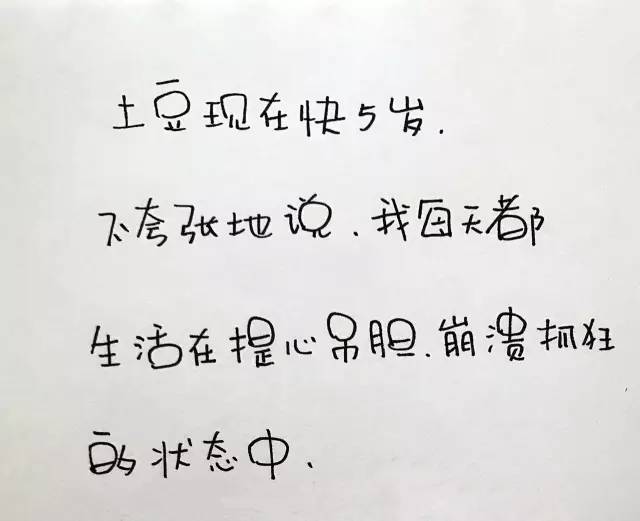 土豆现在快5岁.
不夸张地说.我每天都
生活在提心吊胆.崩溃抓狂
的状态中.